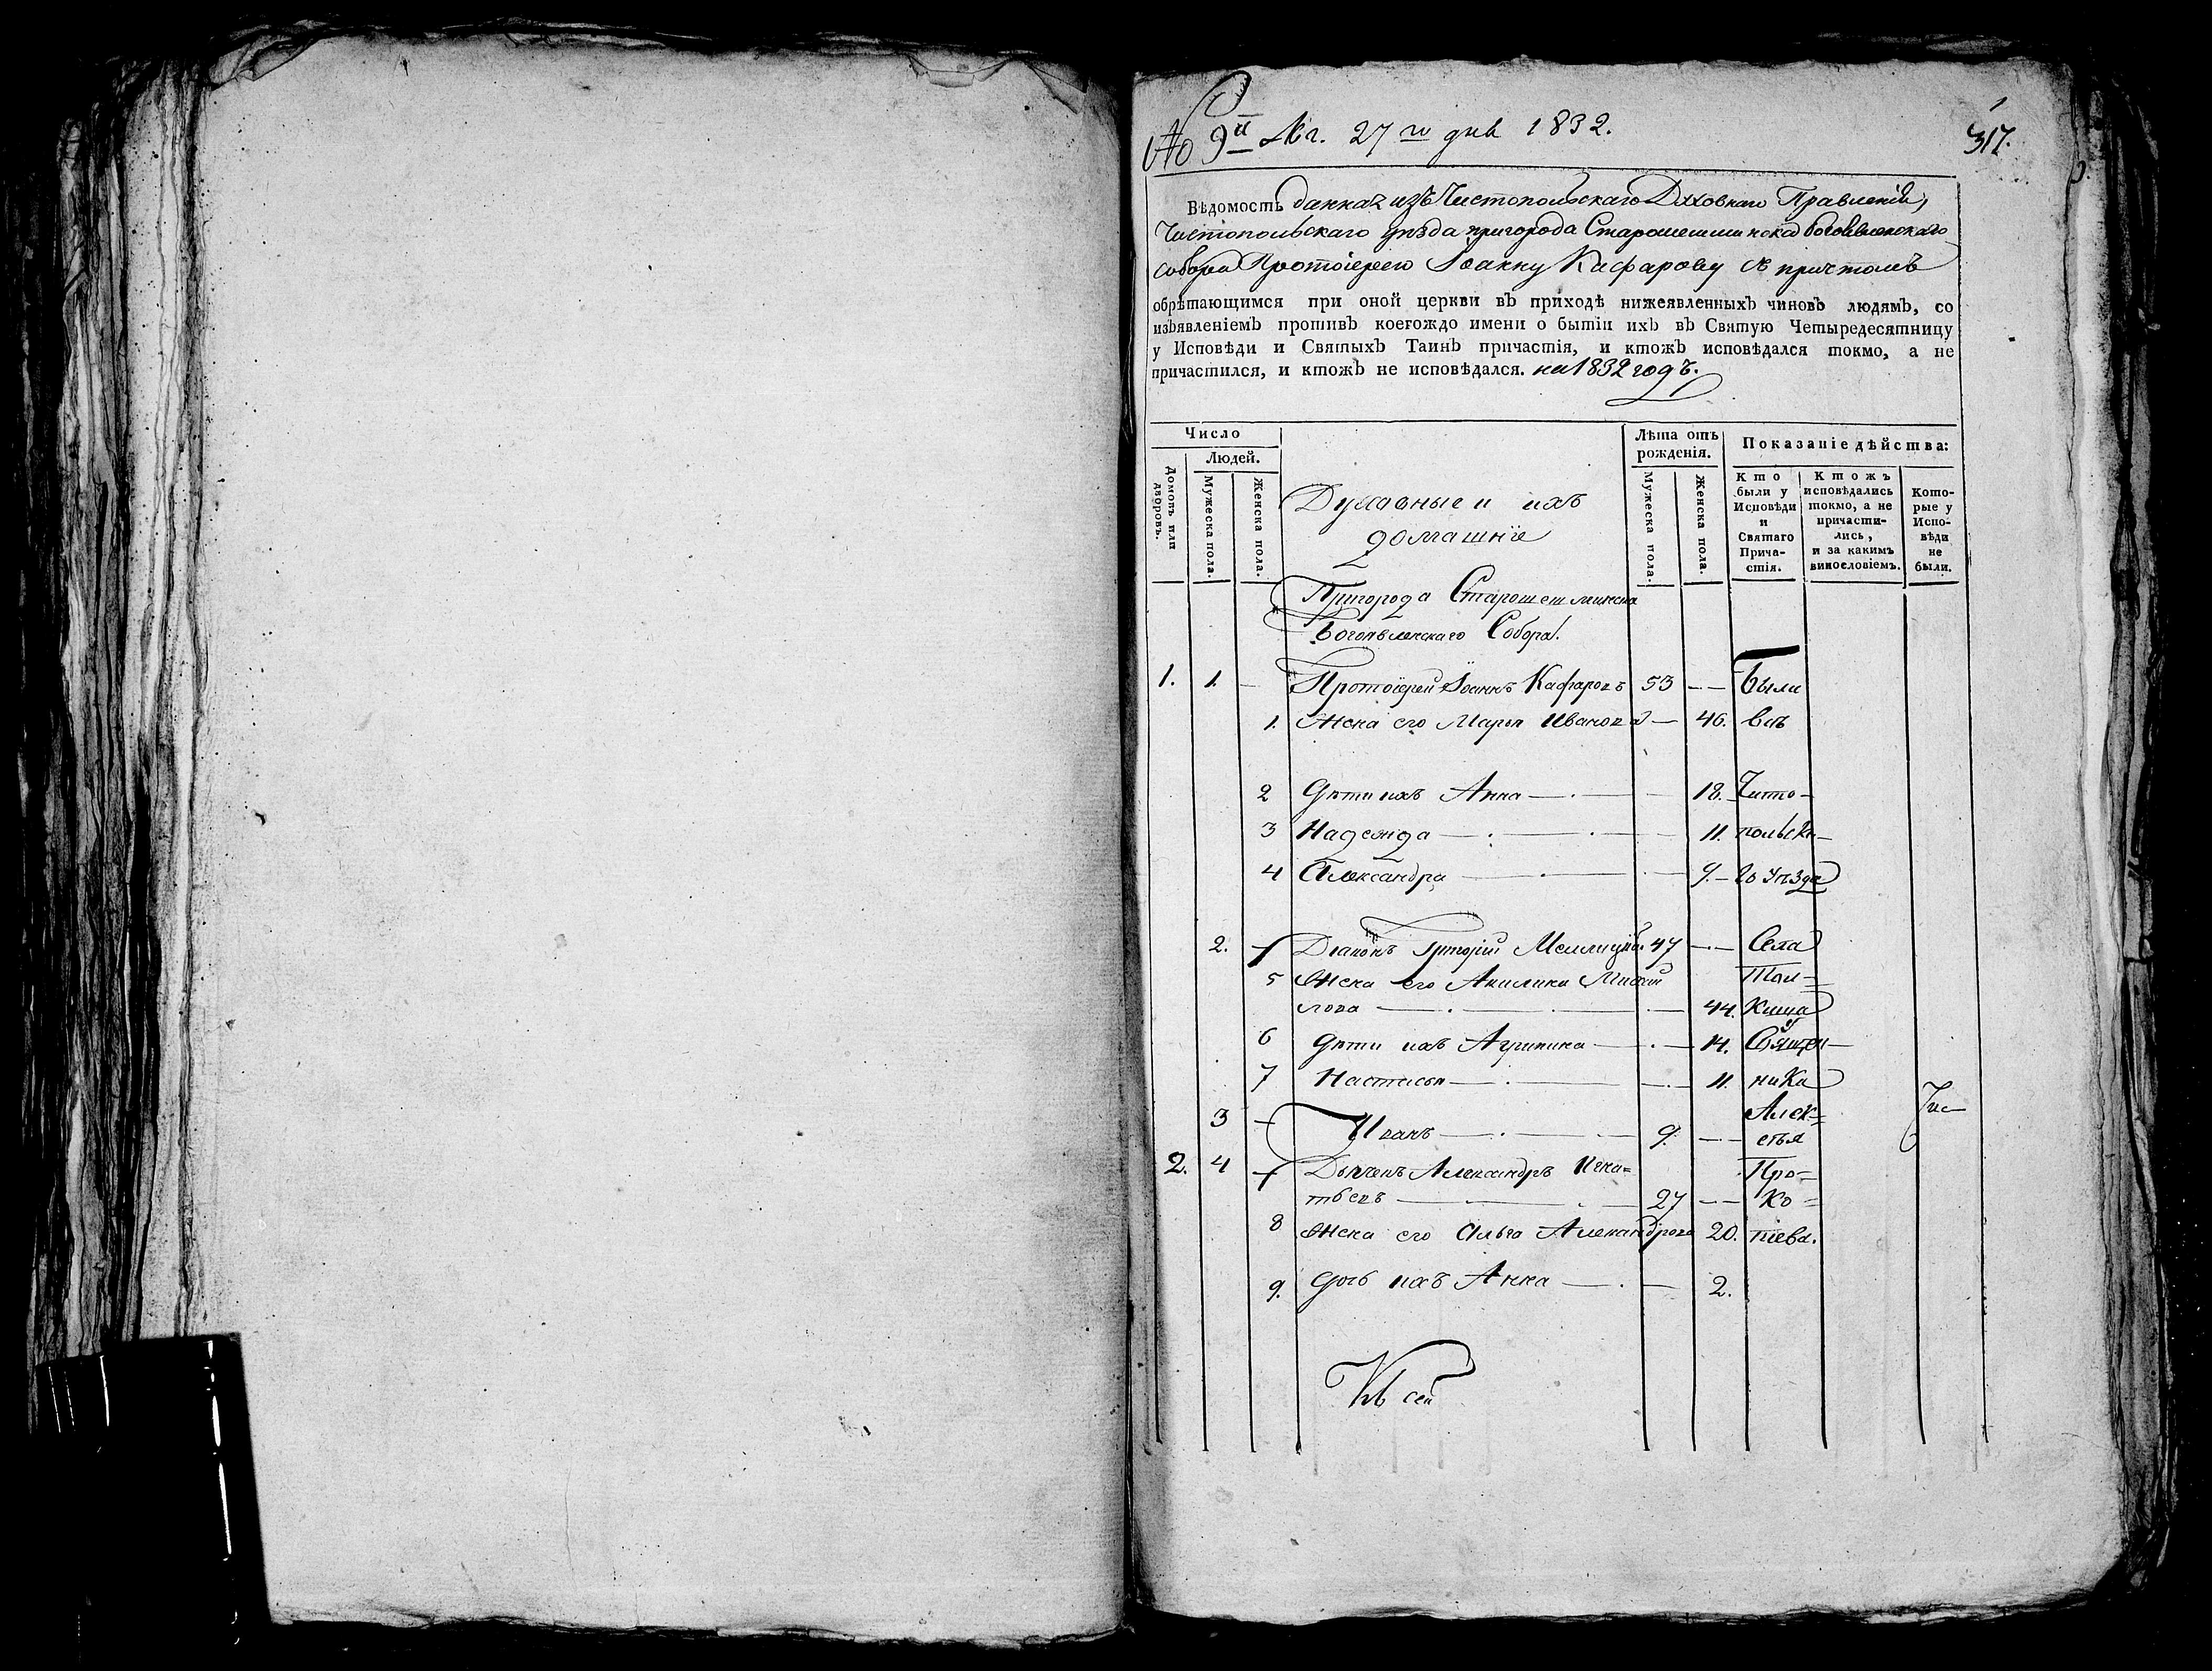 № 9й 27го дня 1832.
317.
Вѣдомость данная изъ Чистопольскаго Духовнаго Правленія,
Чистопольскаго уѣзда пригорода Старошешминска Богоявленскаго
собора Протоіерею Іоанну Кафарову съ причтомъ
обрѣтающимся при оной церкви въ приходѣ нижеявленныхъ чиновъ людямъ, со
изъявленіемъ противъ коегождо имени о бытіи ихъ въ Святую Четыредесятницу
у Исповѣди и Святыхъ Таинъ причастія, и ктожъ исповѣдался токмо, а не
причастился, и ктожъ не исповѣдался. на 1832 годъ.
Число
Людей.
Домовъ или дворовъ.
Мужеска пола.
Женска пола.
Духовные и ихъ
домашніе
Лѣта отъ рожденія.
Мужеска пола.
Женска пола.
Показаніе дѣйства:
Кто были у Исповѣди и Святаго Прича-стія.
Ктожъ исповѣдались токмо, а не причасти-лись, и за какимъ винословіемъ.
Кото-рые у Испо-вѣди не были.
Пригорода Старошешминска
Богоявленскаго Собора.
1. 1. — Протоіерей Іоаннъ Кафаровъ 53 — — Были
1. Жена его Марья Иванова — 46. въ
2 Дѣти ихъ Анна — 18. Чисто-
3 Надежда — 11. польска-
4 Александра — 9. го уѣзда
2. — Діаконъ Григорій 47 — — Села
5 Жена его Акилина Михай Тол-
лова — 44. киша
6 Дѣти ихъ Агрипина — 14. Священ-
7 Настасья — 11. ника
3 — Иванъ — 9. — — Алек-
сѣя
2. 4 — Дьячекъ Александръ Игна= Про-
тьевъ — 27 — — ко=
8 Жена его Ольга Александрова 20. піева.
9. Дочь ихъ Анна — 2.
Къ сей